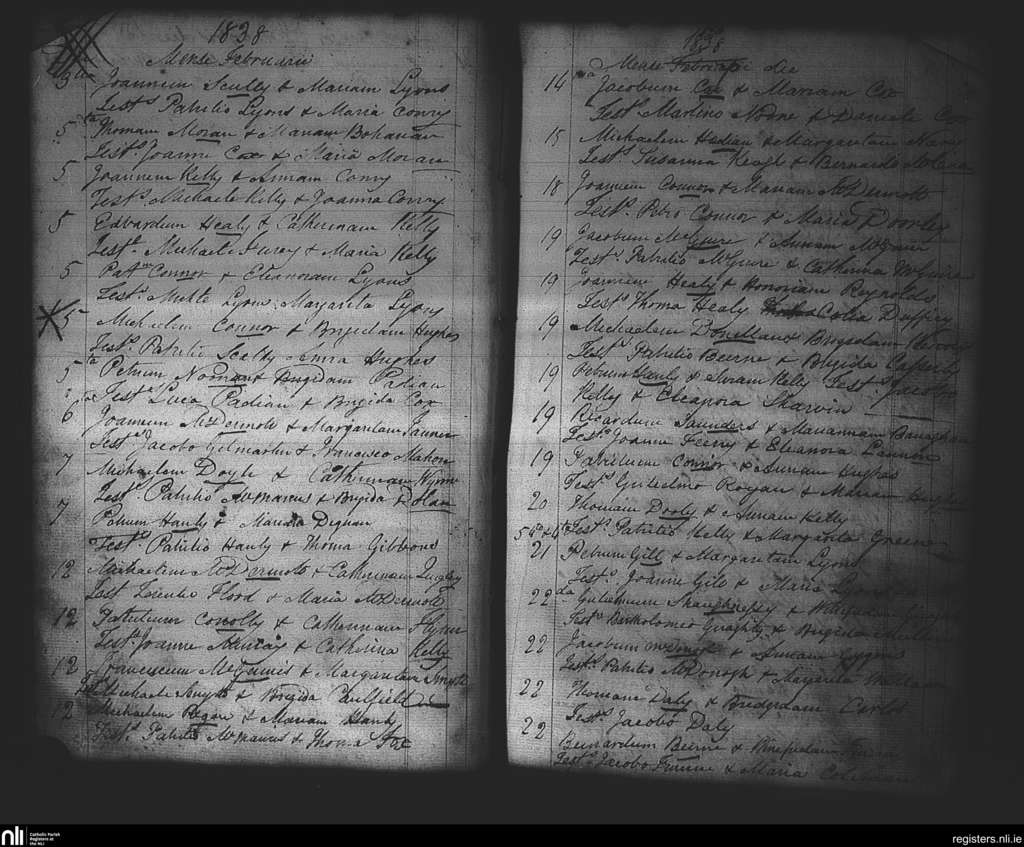 1838
Mense Februarii
3tia Joannem Scully & Mariam Lyons
Tests Patritio Lyons & Maria Conry
5ta Thomam Moran & Mariam Bohanan
Tests Joanne Cox & Maria Moran
5 Joannem Kelly & Annam Conry
Tests Michaele Kelly & Joanna Conry
5 Edvardum Healy & Catherinam Kelly
Tests Michaele Furey & Maria Kelly
5 Patm Connor & Eleanoram Lyons
Tests Michle Lyons Margarita Lyons
5 Michaelem Connor & Brigidam Hughes
Tests Patritio Scully Anna Hughes
5 Petrum Noonan & Brigidam Padian
Tests Luca Padian & Brigida Cox
6 Joannem McDermott & Margaritam
Tests Jacobo Gilmartin & Francisco Mahon
7 Michaelem Doyle & Catherinam Wynne
Tests Patritio McManus & Brigida Dolan
7 Petrum Hanly & Mariam Dignan
Tests Patritio Hanly & Thoma Gibbons
12 Michaelem McDermott & Catherinam Quigley
Test Laurentio Flood & Maria McDermott
12 Patritium Conolly & Catherinam Flynn
Tests Joanne Murray & Catherina Kelly
12 Franciscum McGuinis & Margaritam Smyth
Test Michaele Smyth & Brigida Caulfield
12 Michaelem Regan & Mariam Hanly
Tests Patritio McManus & Thoma Fox
1838
Mense Februarii die
14 Jacobum Cox & Mariam Cox
Tests Martino Noone & Daniele Cox
15 Michaelem Hadian & Margaritam
Tests Susanna Keogh & Bernardo Nolan
18 Joannem Connor & Mariam McDermott
Tests Petro Connor & Maria Doorley
19 Jacobum McGuire & Annam McGuire
Tests Patritio McGuire & Catherina McGuire
19 Joannem Healy & Honoriam Reynolds
Tests Thoma Healy Celia Duffiey
19 Michaelem Donellan & Brigidam
Tests Patritio Beirne & Brigida
19 Petrum Hanly & Annam Kelly Tests Jacobo
Kelly & Eleanora Sharvin
19 Ricardum Saunders & Mariannam Banaghan
Tests Joanne Ferry & Eleanora
19 Patritium Connor & Annam Hughes
Tests Gulielmo Rogan & Mariam
20 Thomam Dooly & Annam Kelly
Tests Patritio Kelly & Margarita Greene
21 Petrum Gill & Margaritam Lyons
Tests Joanne Gill & Maria Lyons
22da Gulielmum Shaughnessy &
Tests Bartholomeo Geraghty & Brigida
22 Jacobum McDonogh & Annam
Tests Patritio McDonogh & Margarita
22 Thomam Daly & Bridgidam Carlos
Tests Jacobo Daly
22 Bernardum Beirne &
Tests Jacobo & Maria Coleman
nli Catholic Parish
Registers at
the NLI
registers.nli.ie